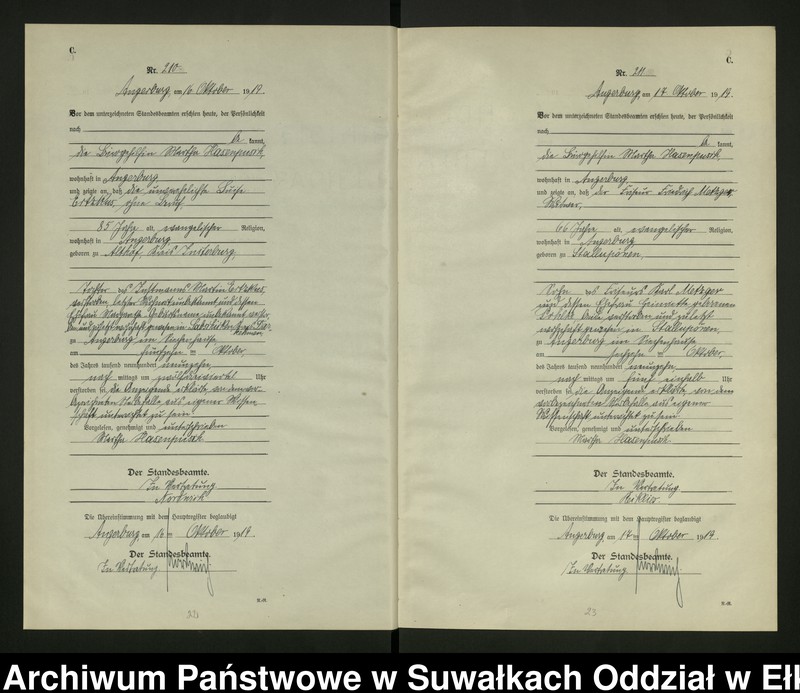 C.
Nr. 210
Angerburg, am 16. Oktober 1919.
Vor dem unterzeichneten Standesbeamten erschien heute, der Persönlichkeit
nach
kannt,
die Bürogehilfin Martha Hasenpusk,
wohnhaft in Angerburg
und zeigte an, daß die unverehelichte
ohne Beruf
85 Jahre alt, evangelischer Religion,
wohnhaft in Angerburg
geboren zu Althof, Kreis Insterburg,
Tochter des Instmanns Martin
verstorben, letzter Wohnort unbekannt und dessen
Ehefrau
zu Angerburg im Siechenhause
am fünfzehn ten Oktober
des Jahres tausend neunhundert neunzehn
nach mittags um Uhr
verstorben sei. Die Anzeigende erklärte, von dem vor
bezeichneten Sterbefalle aus eigener Wissen
schaft unterrichtet zu sein
Vorgelesen, genehmigt und unterschrieben
Martha Hasenpusk
Der Standesbeamte.
In Vertretung
Die Übereinstimmung mit dem Hauptregister beglaubigt
Angerburg, am 16 ten Oktober 1919.
Der Standesbeamte.
In Vertretung
C.
Nr. 211
Angerburg, am 17. Oktober 1919.
Vor dem unterzeichneten Standesbeamten erschien heute, der Persönlichkeit
nach
kannt,
die Bürogehilfin Martha Hasenpusk,
wohnhaft in Angerburg
und zeigte an, daß der Friedrich Metzger,
Witwer,
66 Jahre alt, evangelischer Religion,
wohnhaft in Angerburg
geboren zu Stallupönen,
Sohn des Karl Metzger
und dessen Ehefrau Henriette geborenen
beide verstorben und zuletzt
wohnhaft gewesen in Stallupönen,
zu Angerburg im Siechenhause
am sechzehn ten Oktober
des Jahres tausend neunhundert neunzehn
nach mittags um fünf einhalb Uhr
verstorben sei. Die Anzeigende erklärte, von dem
vorbezeichneten Sterbefalle aus eigener
Wissenschaft unterrichtet zu sein
Vorgelesen, genehmigt und unterschrieben
Martha Hasenpusk
Der Standesbeamte.
In Vertretung
Die Übereinstimmung mit dem Hauptregister beglaubigt
Angerburg, am 17 ten Oktober 1919.
Der Standesbeamte.
In Vertretung
23
Archiwum Państwowe w Suwałkach Oddział w Ełk